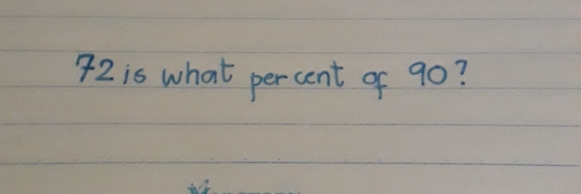 72 is what percent of 90?